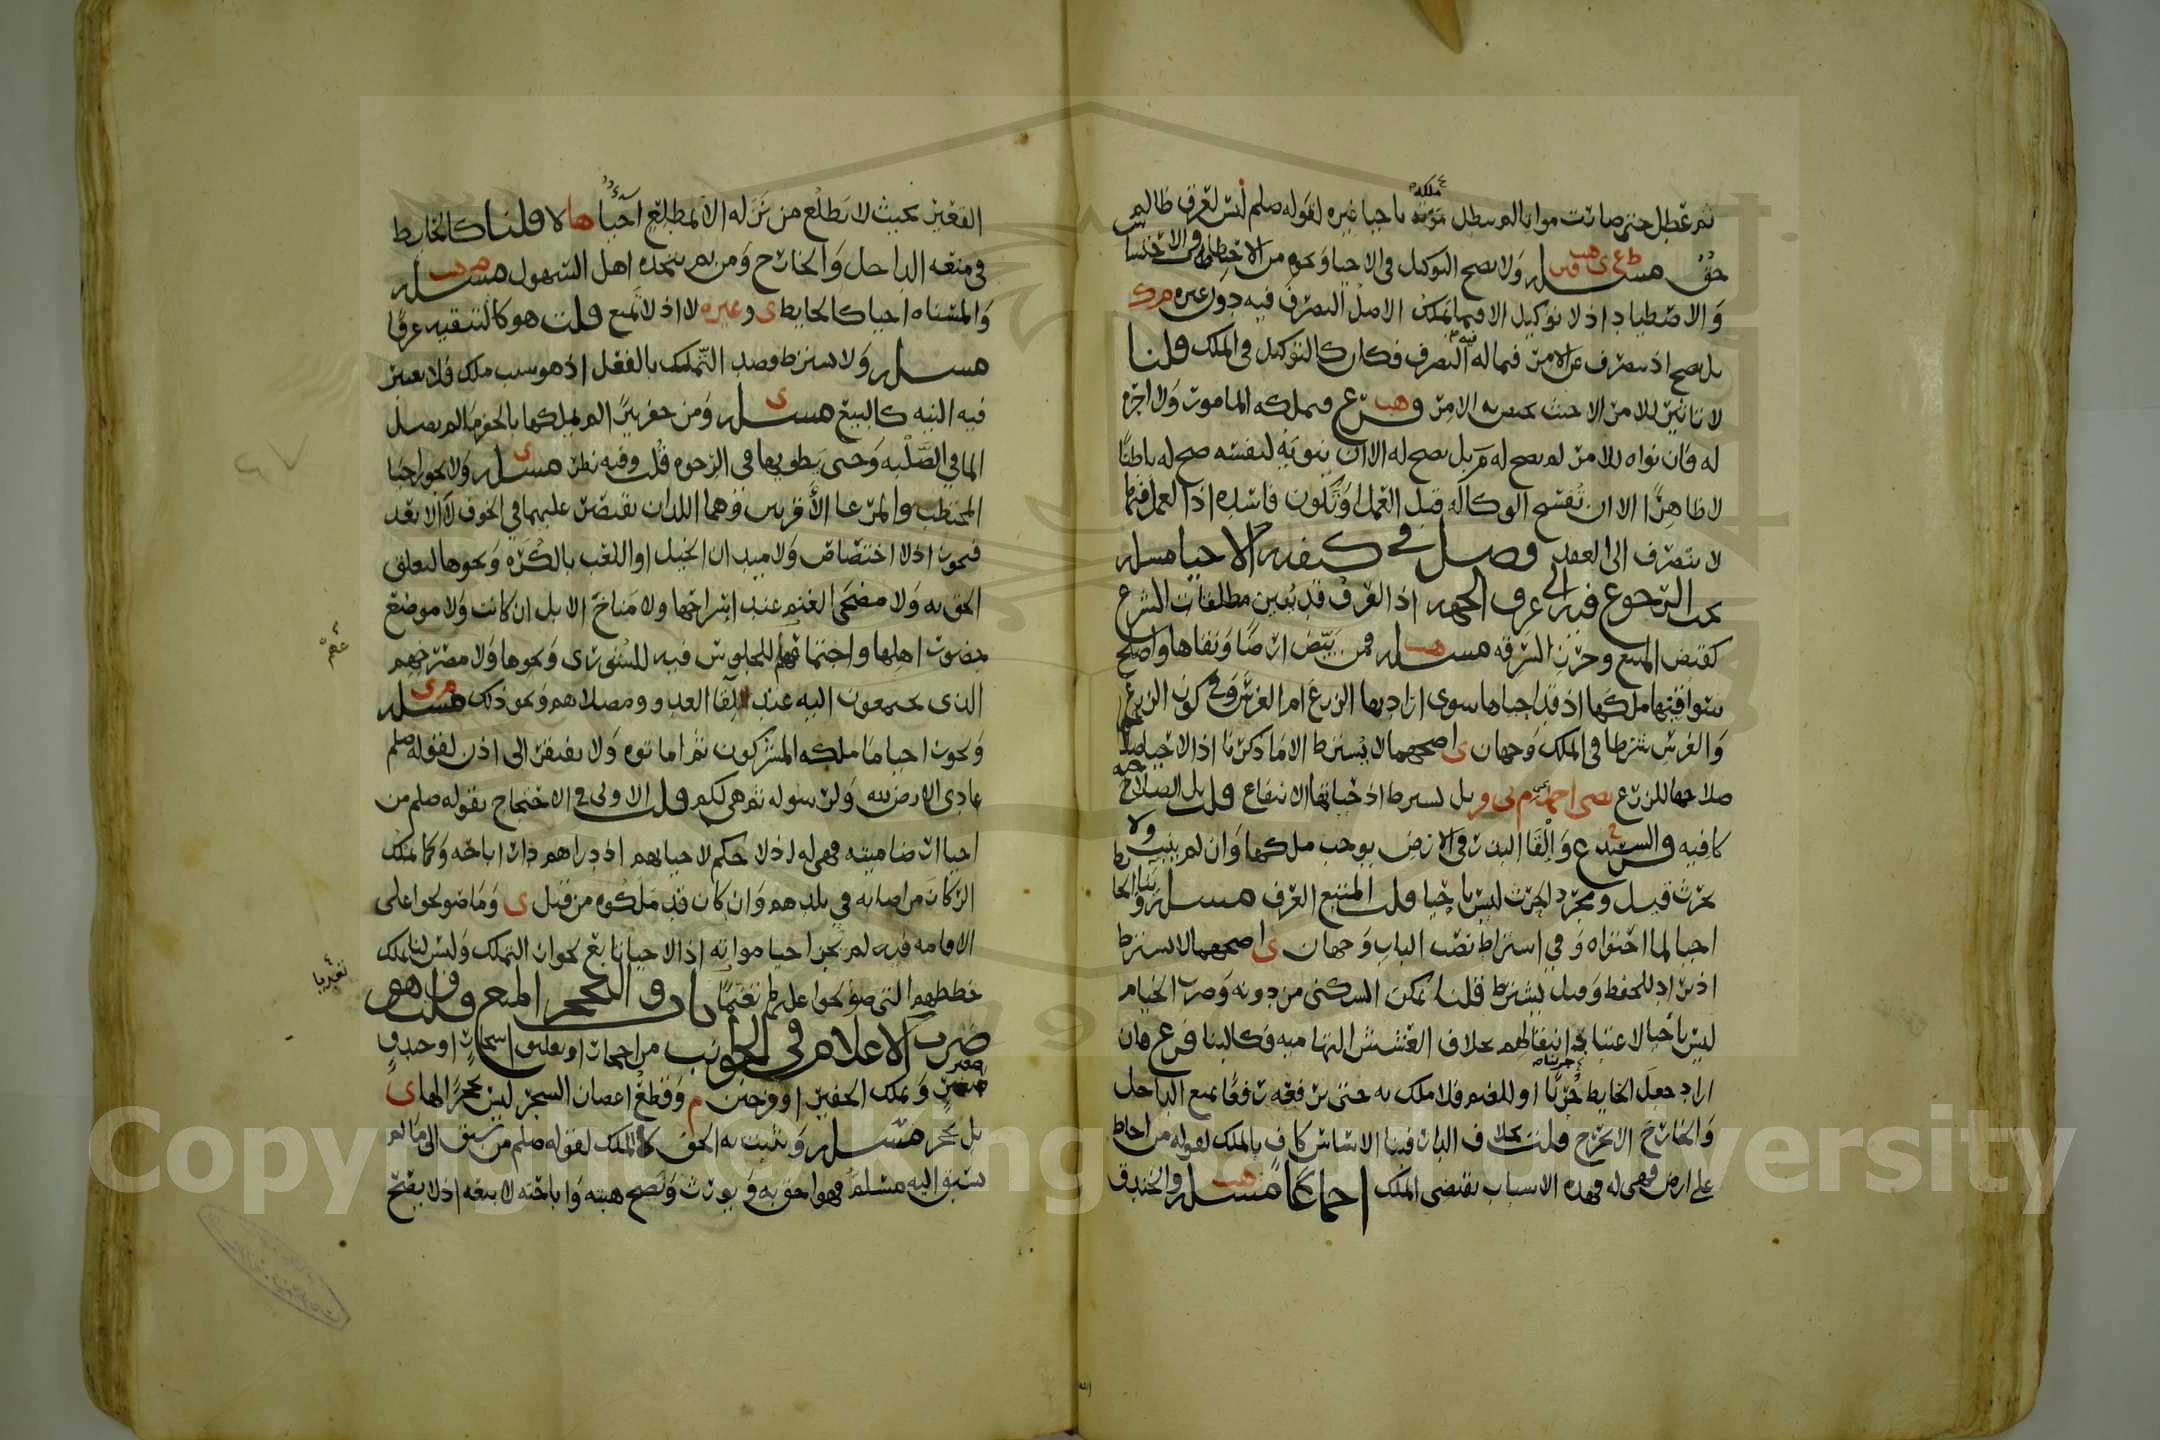 ثم عطل حتى صارت مواتا لم يبطل ملكه باحيا غيره لقوله صلعم ليس لعرق ظالم
حق مسئله ولا يصح التوكيل في الاحيا ونحوه من الاحتطاب والاحتشاش
والاصطياد اذ لا توكيل الا فيما يمكن الاصل التصرف فيه دون غيره م ك
بل يصح اذ يتصرف عن الامر فيما له فيه التصرف فكان كالتوكيل في الملك قلنا
لا تاثير للامر الا حيث يختص به الامر فرع فيملكه المامور ولا اجره
له فان نواه للامر لم يصح له م بل يصح له الا ان ينويه لنفسه صح له باطنا
لا ظاهرا الا ان تفسخ الوكاله قبل العمل او تكون فاسده اذ العمل فيها
لا يتصرف الى العقد فصل في كيفية الاحيا مسئله
يجب الرجوع فيه الى عرف الجهه اذ العرف قد يعين مطلقات الشرع
كقبض المبيع وحرز السرقه مسئله فمن بيض ارضا ونقاها واصلح
سواقيها ملكها اذ قد احياها سوى اراد بها الزرع ام الغرس وفي كون الزرع
والغرس شرطا في الملك وجهان ى اصحهما لا يشترط الا ما ذكرنا اذ الاحيا
صلاحها للزرع بل يشترط اذ حياتها الانتفاع قلت بل الصلاحيه
كافيه فرع والقا البذر في الارض يوجب ملكها وان لم ينبت ولا
يحرث قيل ومجرد الحرث ليس باحيا قلت المتبع العرف مسئله وبنا الحائط
احيا لما احتواه وفي اشتراط نصب الباب وجهان ى اصحهما لا يشترط
اذ يراد للحفظ وقيل يشترط قلنا تمكن السكنى من دونه وضرب الخيام
ليس باحيا لاعتياد انتقالهم بخلاف العشش الملتزمه فكالبنا فرع فان
اراد جعل الحايط جرينا او للغنم فلا ملك به حتى يرفعه رفعا يمنع الداخل
والخارج الا بحرج قلت بخلاف الباب فبنا الاساس كاف بالملك لقوله من احاط
على ارض فهي له فهذه الاسباب تقتضي الملك اجماعا مسئله والخندق
القعير بحيث لا يطلع من نزله الا بمطلع احيا ها لا قلنا كالحايط
في منعه الداخل والخارج ومن ثم يتخذه اهل السهول مسئله
والمسناه احيا كالحايط ى وغيره لا اذ لا تمنع قلت هو كالتنقيه عرفا
مسئله ولا يشترط قصد التملك بالفعل اذ هو سبب ملك فلا يعتبر
فيه النيه كالبيع مسئله ى ومن حفر بيرا لم يملكها بالحفر ما لم يصل
الما في الصلبه وحتى يطويها في الرخوه قلت وفيه نظر مسئله ى ولا يجوز احيا
المحتطب والمرعا الاقربين وهما اللذان يقتصر عليهما في الخوف لا الابعد
فيجوز اذ لا اختصاص ولا ميدان الخيل او اللعب بالكره ونحوها لتعلق
الحق به ولا مضحى الغنم عند اسراحها ولا مناخ الابل ان كانت ولا موضع
حضور اهلها واجتماعهم للجلوس فيه للشورى ونحوها ولا مصرخهم
الذي يجتمعون اليه عند لقا العدو ومصلاهم ونحو ذلك مسئله م ى
ويجوز احيا ما ملكه المشركون ثم اماتوه ولا يفتقر الى اذن لقوله صلعم
عادي الارض لله ولرسوله ثم هي لكم قلت الاولى في الاحتجاج بقوله صلعم من
احيا ارضا ميته فهي له اذ لا حكم لاحيايهم اذ دارهم دار اباحه وكما يملك
الركاز من اصابه في بلدهم وان كان قد ملكوه من قبل ى وما صولحوا على
الاقامه فيه لم يجز احيا مواته اذ الاحيا تابع لجواز التملك وليس لنا تملك
خططهم التي صولحوا عليها تغنما باب والتحجر المنع قلت هو
ضرب الاعلام في الجوانب من احجار او تعليق اشجار او خندق
صغير ويملك الحفير او وجين م وقطع اغصان الشجر ليس تحجرا لها ى
بل تحجر مسئله ويثبت به الحق لا الملك لقوله صلعم من سبق الى ما لم
يسبق اليه مسلم فهو احق به ويورث وتصح هبته واباحته لا بيعه اذ لا يصح